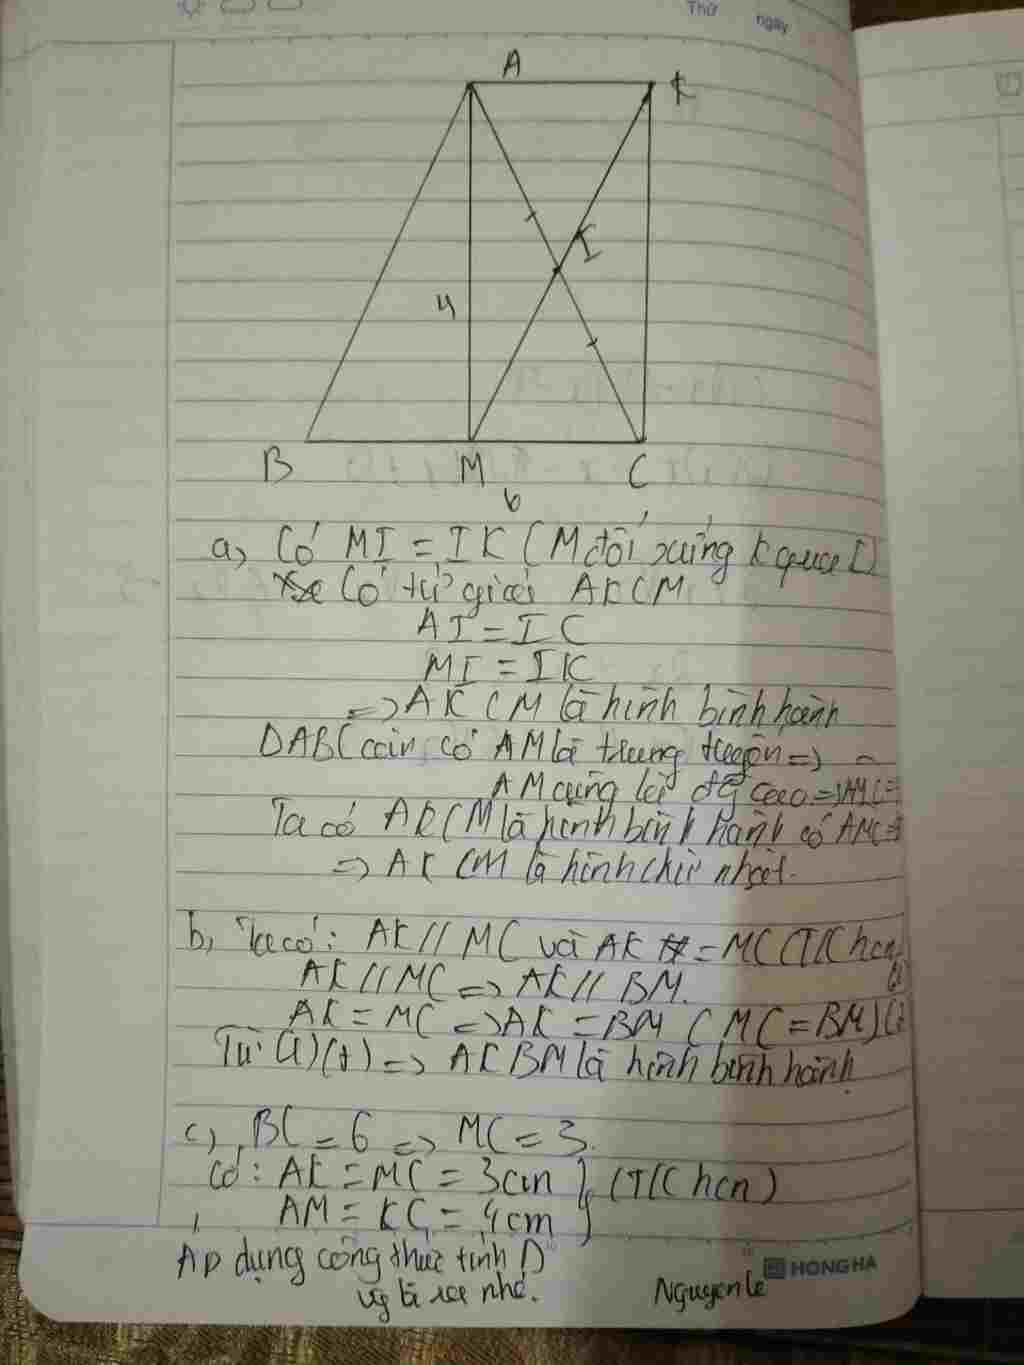 Thứ ngày
A K
I
4
B M C
6
a, Có MI = IK (M đối xứng K qua I)
Có tứ giác AKCM
AI = IC
MI = IK
=> AKCM là hình bình hành
ΔABC cân có AM là trung tuyến =>
AM cũng là đg cao => AMC =
Ta có AKCM là hình bình hành có AMC =
=> AKCM là hình chữ nhật.
b, Ta có: AK // MC và AK = MC (T/C hcn
AK // MC => AK // BM.
AK = MC => AK = BM (MC = BM)
Từ (1) => AKBM là hình bình hành
c, BC = 6 => MC = 3.
Có: AK = MC = 3cm } (T/C hcn)
AM = KC = 4cm }
Áp dụng công thức tính D
là ra nhé.
HONG HA
Nguyenle